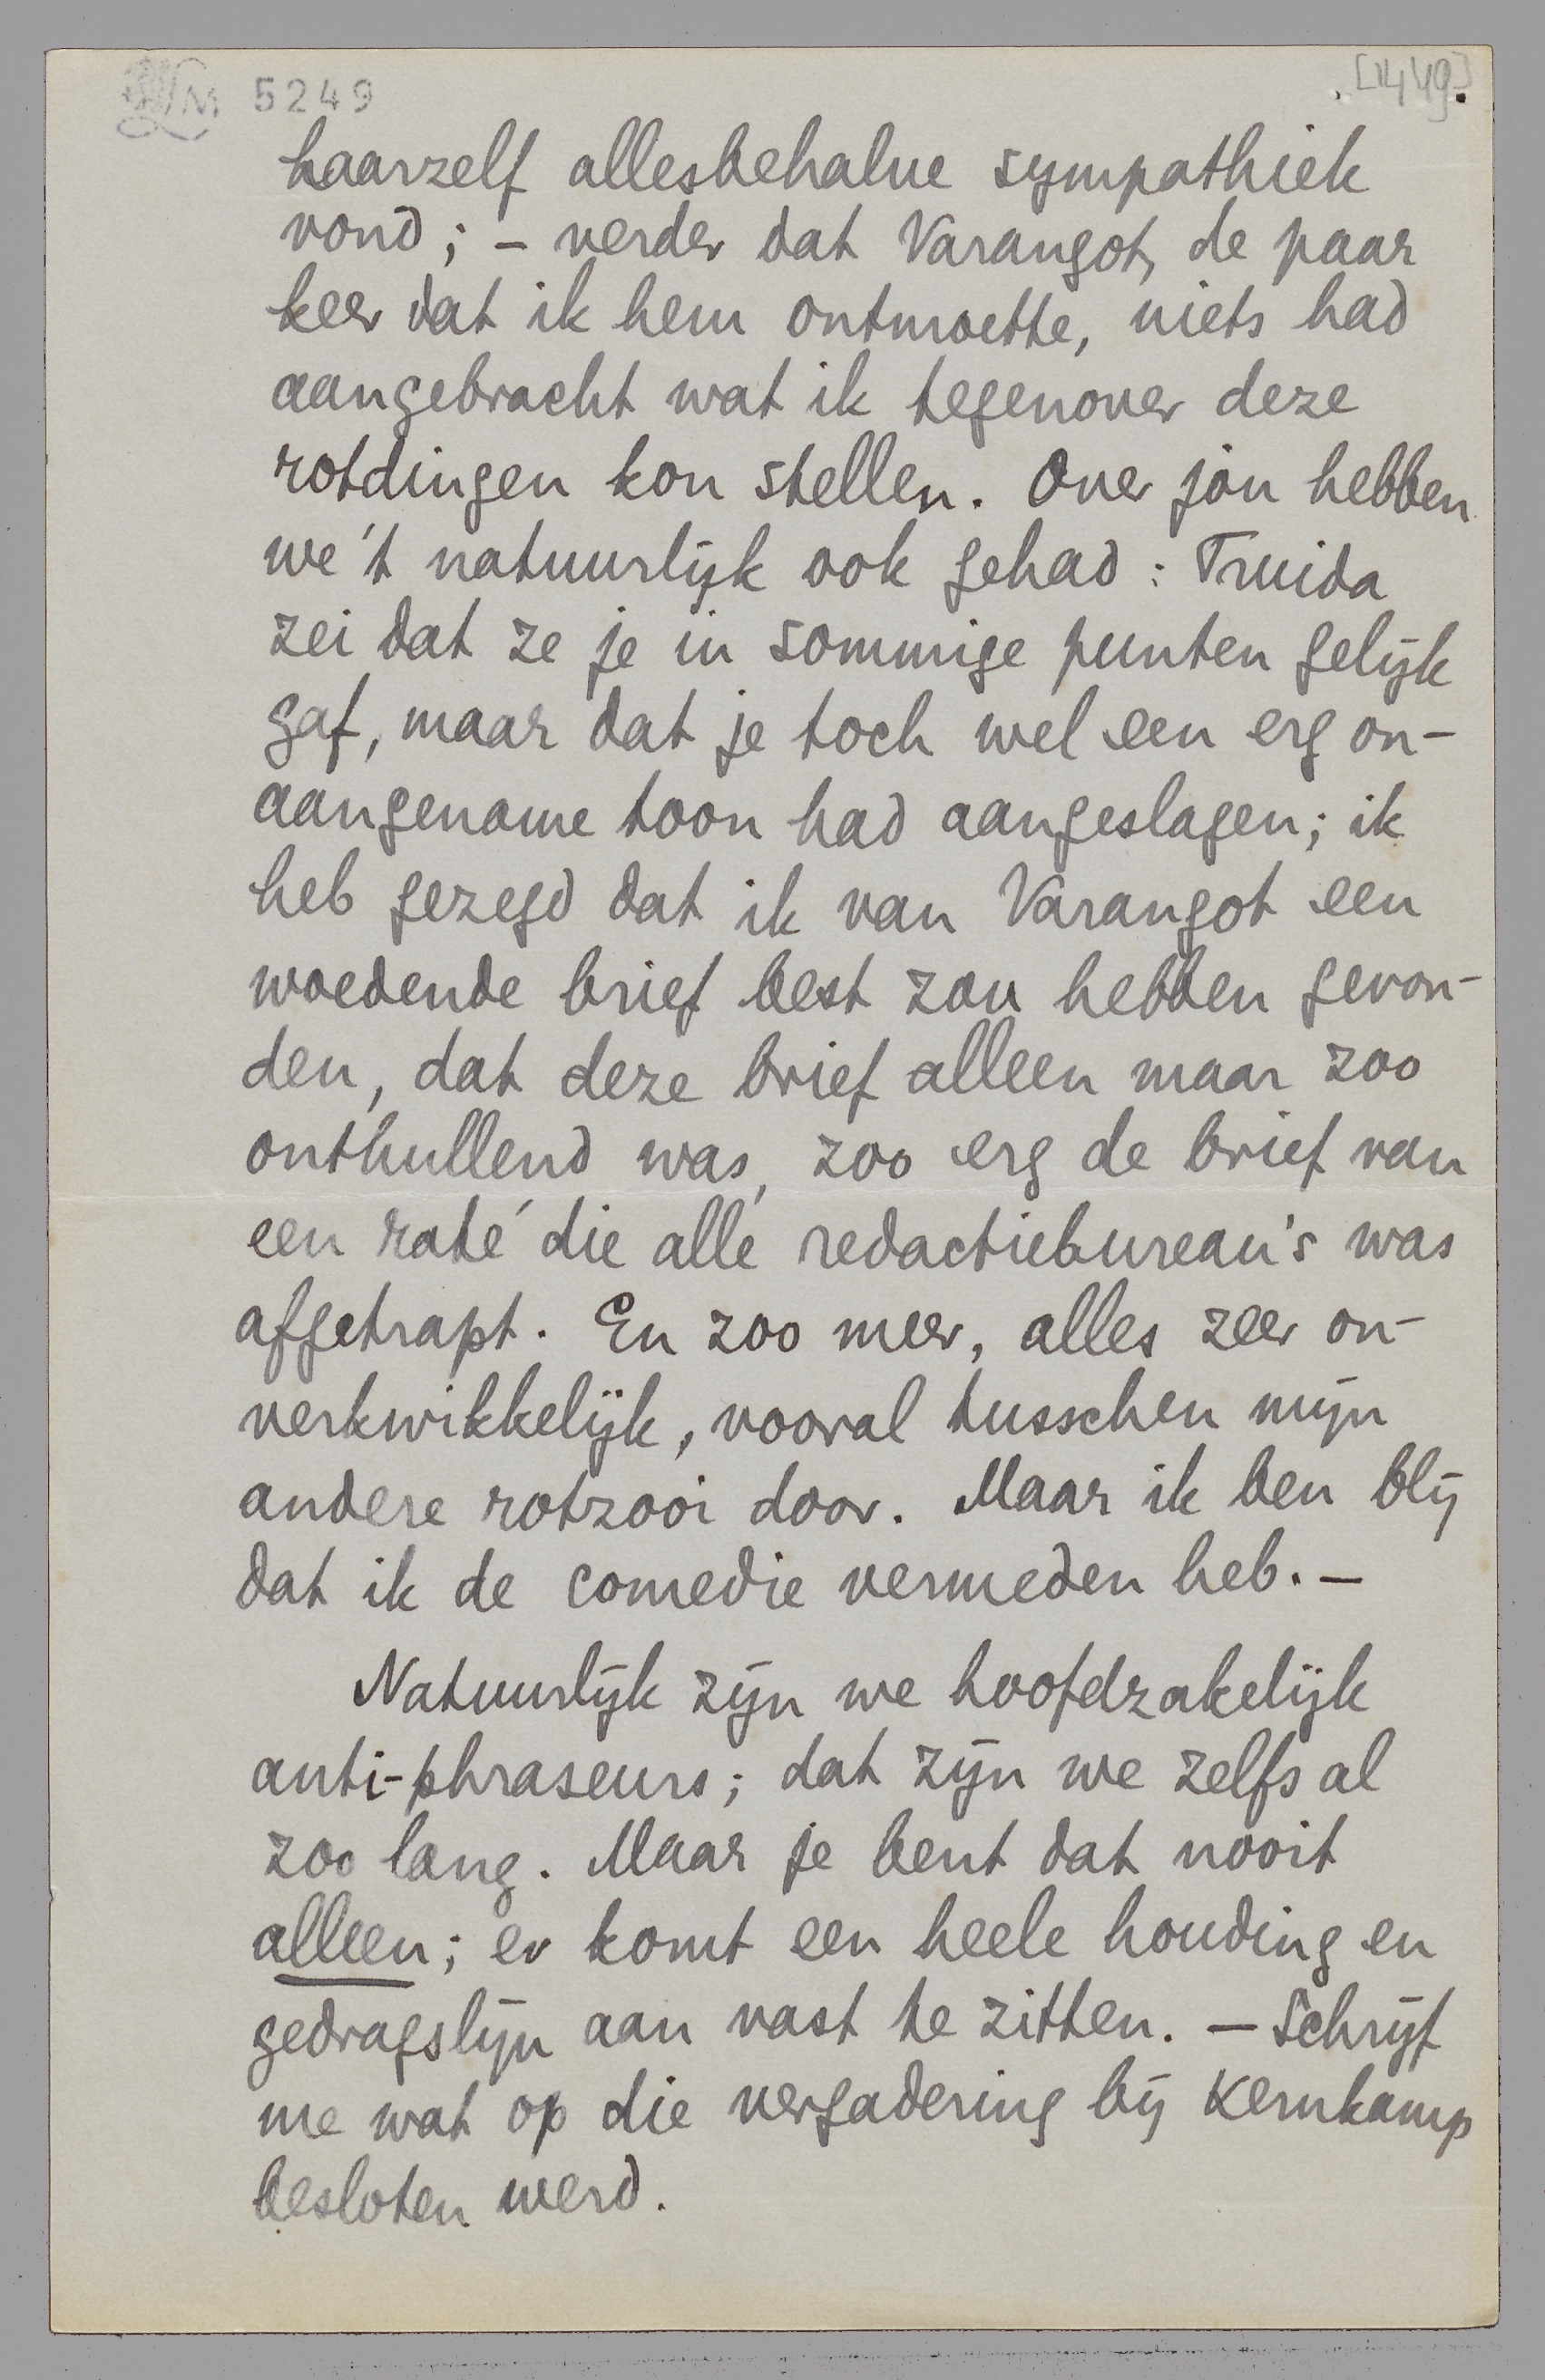 LM 5249
[1449]
haarzelf allesbehalve sympathiek
vond; – verder dat Varangot, de paar
keer dat ik hem ontmoette, niets had
aangebracht wat ik tegenover deze
rotdingen kon stellen. Over jòu hebben
we 't natuurlijk ook gehad: Truida
zei dat ze je in sommige punten gelijk
gaf, maar dat je toch wel een erg on-
aangename toon had aangeslagen; ik
heb gezegd dat ik van Varangot een
woedende brief best zou hebben gevon-
den, dat deze brief alleen maar zoo
onthullend was, zoo erg de brief van
een raté die alle redactiebureau's was
afgetrapt. En zoo meer, alles zeer on-
verkwikkelijk, vooral tusschen mijn
andere rotzooi door. Maar ik ben blij
dat ik de comedie vermeden heb. –
Natuurlijk zijn we hoofdzakelijk
anti-phraseurs; dat zijn we zelfs al
zoo lang. Maar je bent dat nooit
alleen; er komt een heele houding en
gedragslijn aan vast te zitten. – Schrijf
me wat op die vergadering bij Kernkamp
besloten werd.